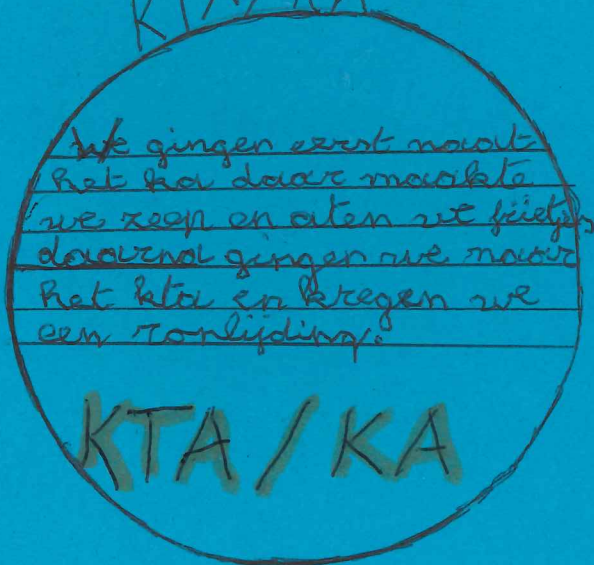 KTA/KA
We gingen eerst naart
het ka daar maakte
we zeep en aten we frietjes
daarna gingen we naar
het kta en kregen we
een ronlijding.
KTA/KA